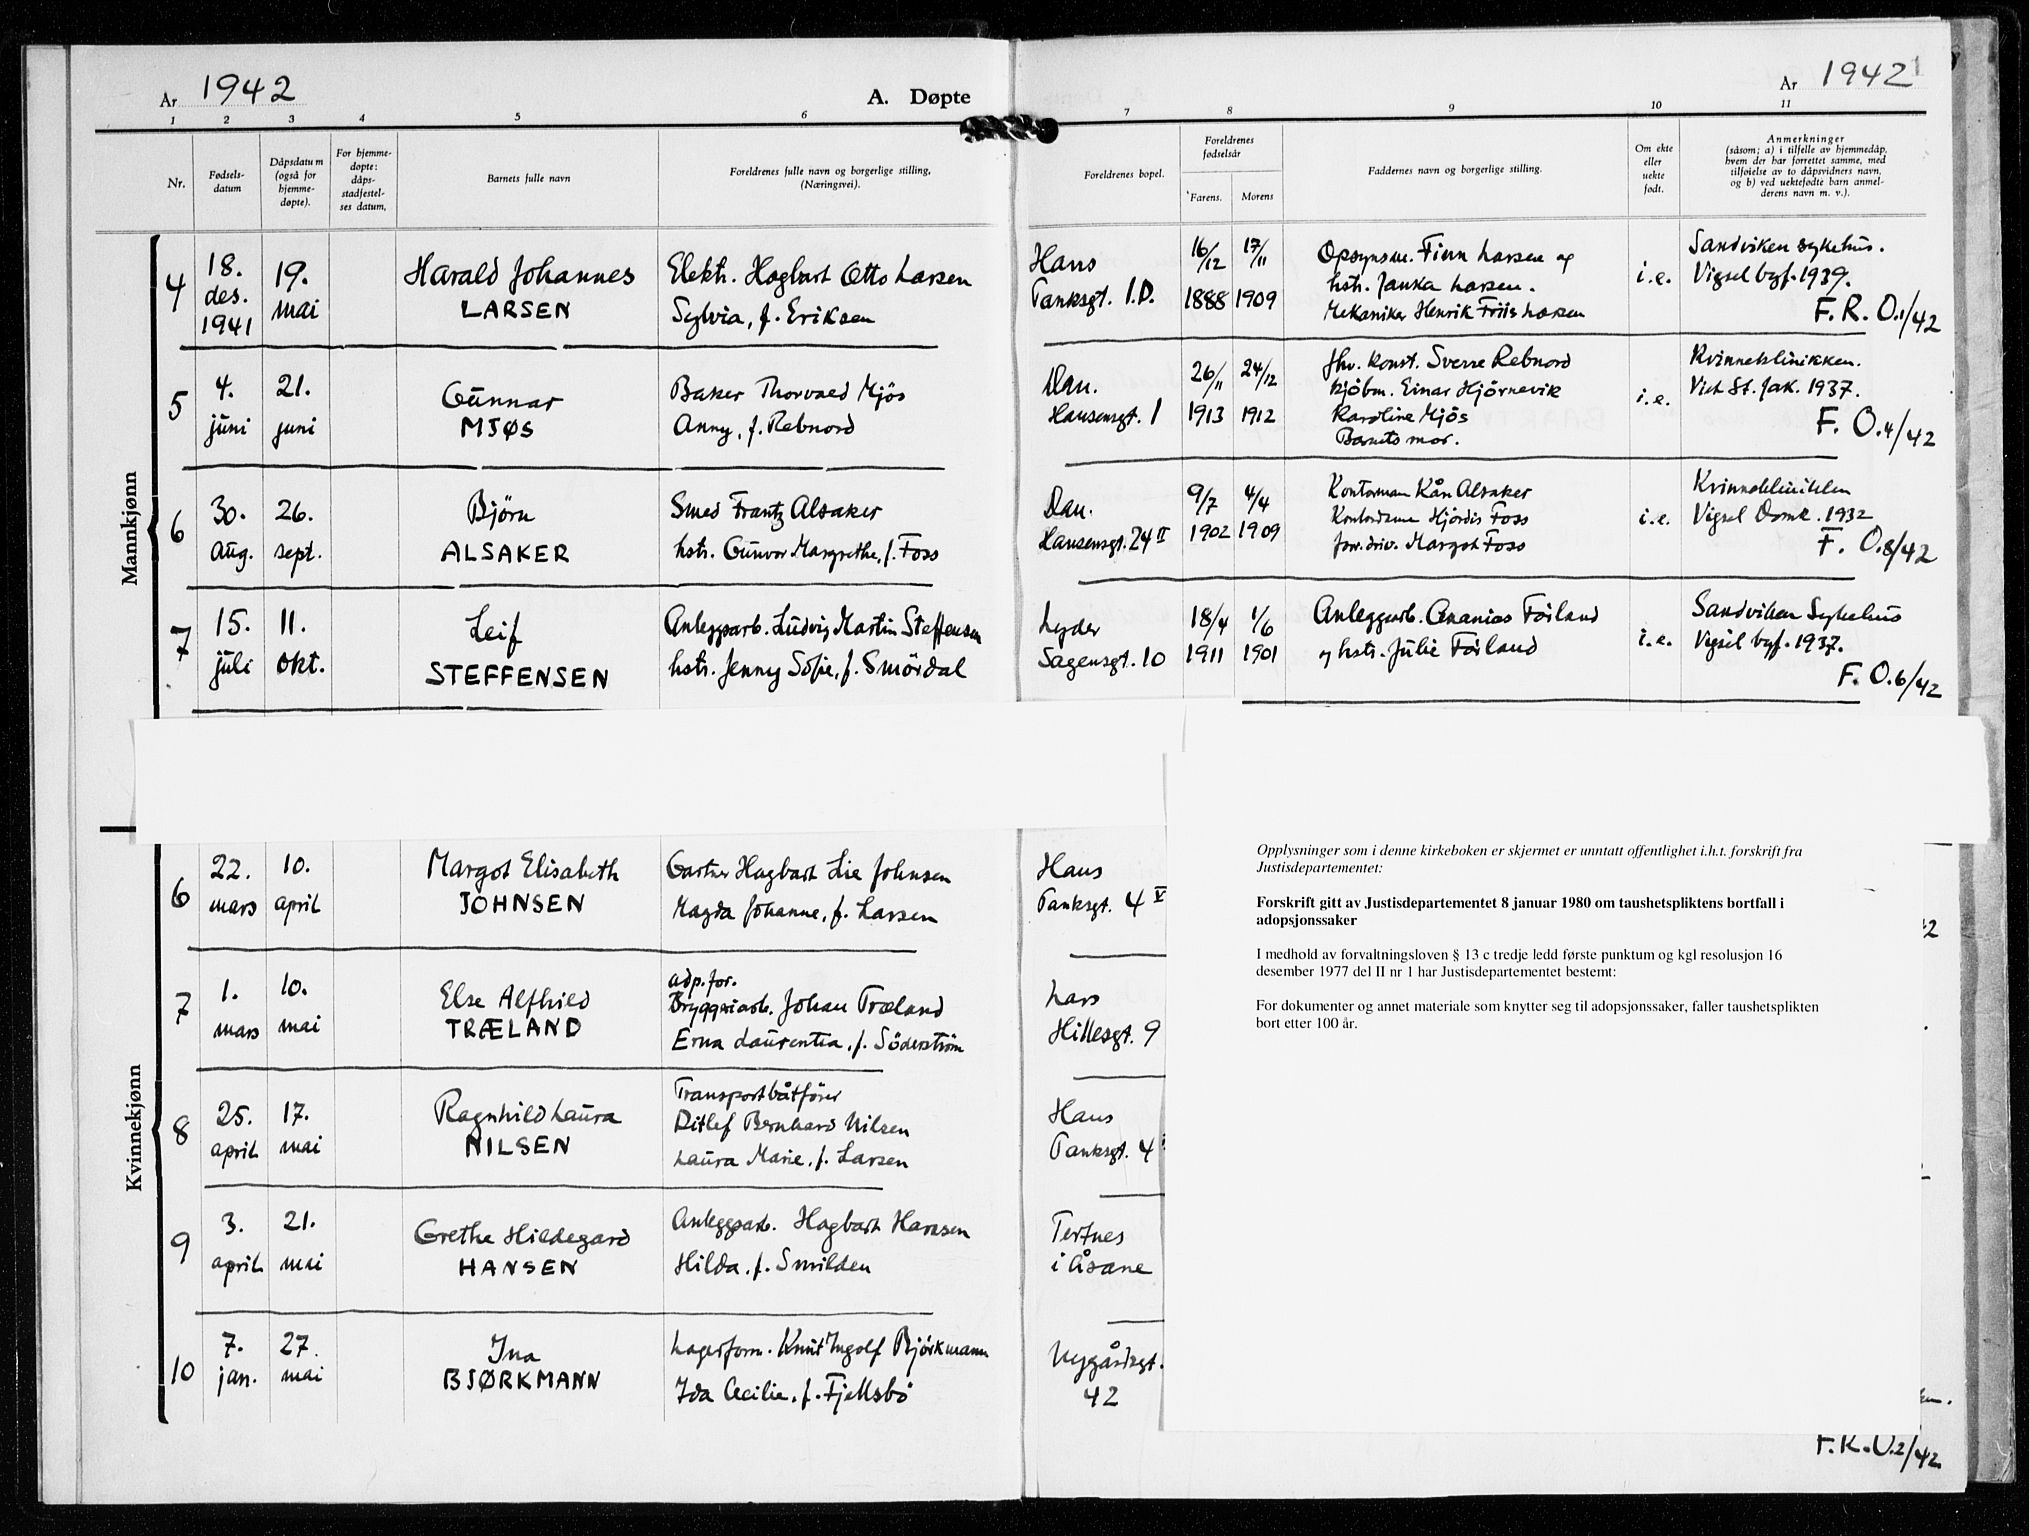 År 1942
A. Døpte
År 1942
1 2 3 4 5 6 7 8 9 10 11
Nr.
Fødsels-
datum
Dåpsdatum
(også for
hjemme-
døpte).
For hjemme-
døpte:
dåps-
stadfestel-
ses datum.
Barnets fulle navn
Foreldrenes fulle navn og borgerlige stilling,
(Næringsvei).
Foreldrenes bopel.
Foreldrenes
fødselsår
Farens.
Morens
Faddernes navn og borgerlige stilling.
Om ekte
eller
uekte
født.
Anmerkninger
(såsom; a) i tilfelle av hjemmedåp,
hvem der har forrettet samme, med
tilføielse av to dåpsvidners navn,
og b) ved uektefødte barn anmel-
derens navn m. v.).
Mannkjønn
4
18.
des.
1941
19.
mai
Harald Johannes
LARSEN
Elektr. Hagbart Otto Larsen
Sylvia, f. Eriksen
Hans
Tanksgt. 1.D.
16/12
1888
17/11
1909
Opsynsm. Finn Larsen og
hstr. Janka Larsen.
Mekaniker Henrik Friis Larsen
i.e.
Sandviken sykehus.
Vigsel bygf. 1939.
F. R. O.1/42
5
4.
juni
21.
juni
Gunnar
MJØS
Baker Thorvald Mjøs
Anny, f. Rebnord
Dan.
Hansensgt. 1
26/11
1913
24/12
1912
fhv. konst. Sverre Rebnord
kjöbm. Einar Hjörnevik
Karoline Mjös
Barnets mor.
i.e.
Kvinneklinikken.
Viet St. Jak. 1937.
F. O.4/42
6
30.
aug.
26.
sept.
Björn
ALSAKER
Smed Frantz Alsaker
hstr. Gunvor Margrethe, f. Foss
Dan.
Hansensgt. 24 II
9/7
1902
4/4
1909
Kontorman Kån Alsaker
Kontordame Hjördis Foss
forr.driv. Margot Foss
i.e.
Kvinneklinikken
Vigsel Domk. 1932
F. O.8/42
7
15.
juli
11.
okt.
Leif
STEFFENSEN
Anleggsarb. Ludvig Martin Steffensen
hstr. Jenny Sofie, f. Smördal
Lyder
Sagensgt. 10
18/4
1911
1/6
1901
Anleggsarb. Ananias Förland
og hstr. Julie Förland
i.e.
Sandviken Sykehus
Vigsel bygf. 1937.
F. O.6/42
Kvinnekjønn
6
22.
mars
10.
april
Margot Elisabeth
JOHNSEN
Gartner Hagbart Lie Johnsen
Magda Johanne, f. Larsen
Hans
Tanksgt. 4 V
7
1.
mars
10.
mai
Else Alfhild
TRÆLAND
adp.for.
Bryggeriarb. Johan Træland
Erna Laurentia, f. Söderström
Lars
Hillesgt. 9
8
25.
april
17.
mai
Ragnhild Laura
NILSEN
Transportbåtförer
Ditlef Bernhard Nilsen
Laura Marie, f. Larsen
Hans
Tanksgt. 4
9
3.
april
21.
mai
Grethe Hildegard
HANSEN
Anleggsarb. Hagbart Hansen
Hilda, f. Smilden
Tertnes
i Åsane
10
7.
jan.
27.
mai
Ina
BJØRKMANN
Lagerform. Knut Ingolf Björkmann
Ida Cecilie, f. Fjellsbö
Nygårdsgt.
42
Opplysninger som i denne kirkeboken er skjermet er unntatt offentlighet i.h.t. forskrift fra
Justisdepartementet:
Forskrift gitt av Justisdepartementet 8 januar 1980 om taushetspliktens bortfall i
adopsjonssaker
I medhold av forvaltningsloven § 13 c tredje ledd første punktum og kgl resolusjon 16
desember 1977 del II nr 1 har Justisdepartementet bestemt:
For dokumenter og annet materiale som knytter seg til adopsjonssaker, faller taushetsplikten
bort etter 100 år.
F.R.O.2/42